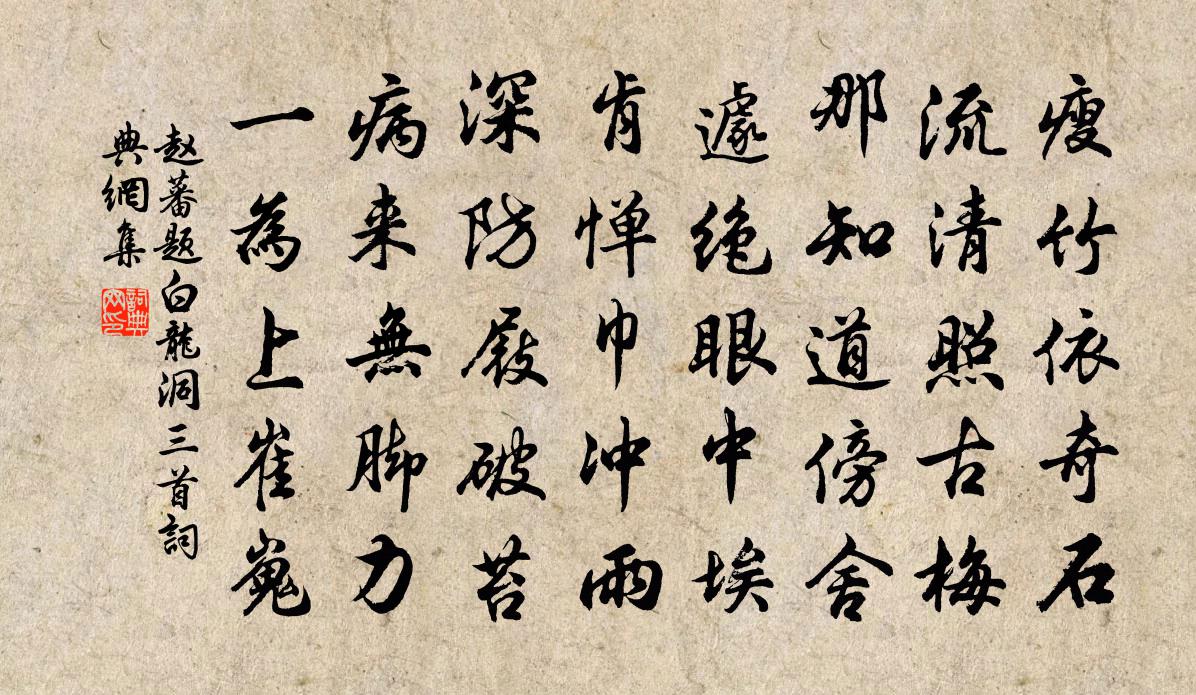 瘦竹依奇石
流清照古梅
那知道傍舍
遽绝眼中埃
肯惮巾冲雨
深防屐破苔
病来無脚力
一為上崔嵬
赵蕃题白龍洞三首詞
典網集
詞典
网印